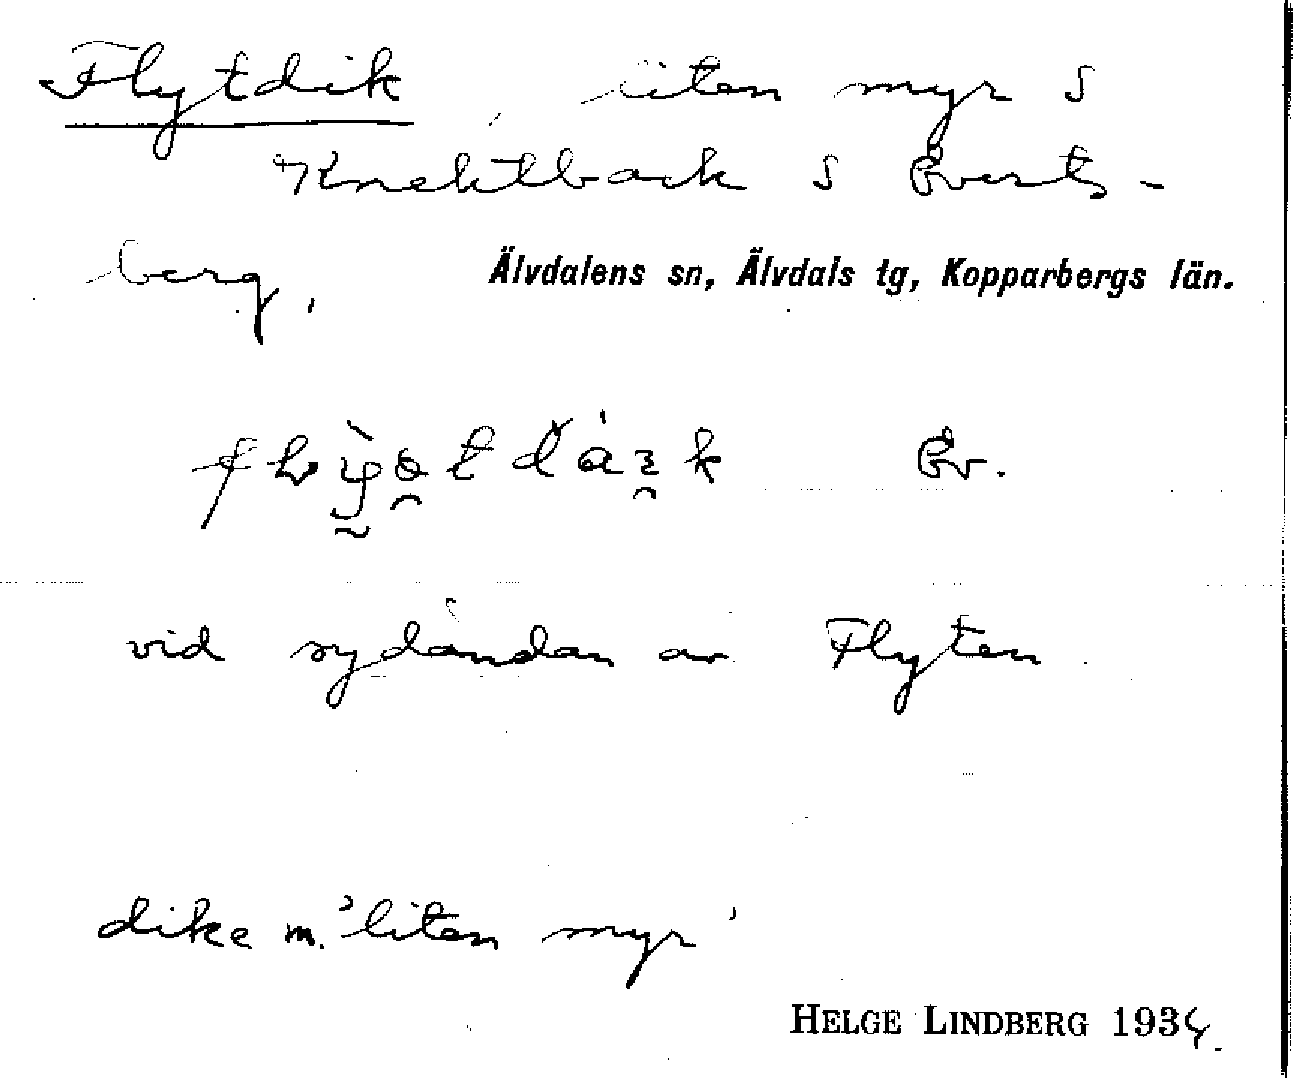 Flytdik, liten myr S
Knektback S Everts-
berg,
Älvdalens sn, Älvdals tg, Kopparbergs län.
Ev.
vid sydändan av Flyten
dike m. 'liten myr'
HELGE LINDBERG 1934